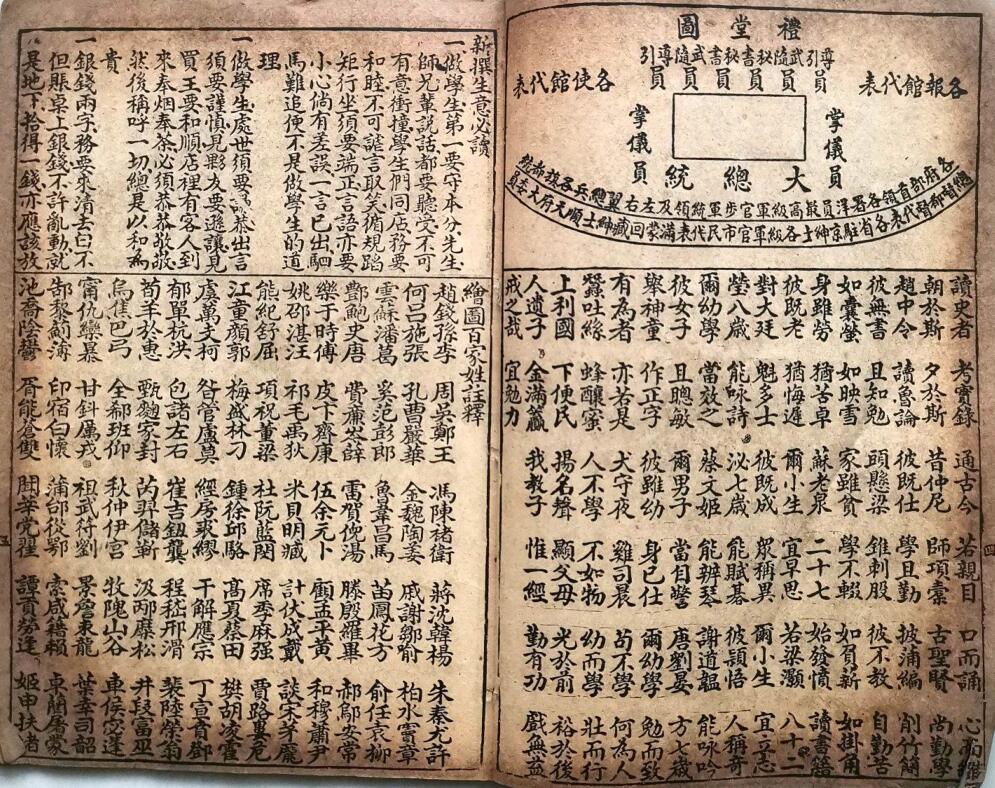 禮堂圖
導引武隨秘書秘書武隨導引
員員員員員員
各報館代表
各使館代表
掌儀員
掌儀員
大總統
各府部首領各署洋員最高級軍官步軍統領及左右翼總兵各旗都統
代表各省駐京紳士各級軍官市民代表滿蒙回藏紳士順天府大
讀史者 考實錄 通古今 若親目 口而誦 心而惟
朝於斯 夕於斯 昔仲尼 師項橐 古聖賢 尚勤學
趙中令 讀魯論 彼既仕 學且勤 披蒲編 削竹簡
彼無書 且知勉 頭懸梁 錐刺股 彼不教 自勤苦
如囊螢 如映雪 家雖貧 學不輟 如負薪 如掛角
身雖勞 猶苦卓 蘇老泉 二十七 始發憤 讀書籍
彼既老 猶悔遲 爾小生 宜早思 若梁灝 八十二
對大廷 魁多士 彼既成 眾稱異 爾小生 宜立志
瑩八歲 能詠詩 泌七歲 能賦碁 彼穎悟 人稱奇
爾幼學 當效之 蔡文姬 能辨琴 謝道韞 能咏吟
彼女子 且聰敏 爾男子 當自警 唐劉晏 方七歲
舉神童 作正字 彼雖幼 身已仕 爾幼學 勉而致
有為者 亦若是 犬守夜 雞司晨 苟不學 何為人
蠶吐絲 蜂釀蜜 人不學 不如物 幼而學 壯而行
上利國 下便民 揚名聲 顯父母 光於前 裕於後
人遺子 金滿籯 我教子 惟一經 勤有功 戲無益
戒之哉 宜勉力
四
新撰生意必讀
一做學生第一要守本分先生
師兄輩說話都要聽受不可
有意衝撞學生們同店務要
和睦不可謊言取笑循規蹈
矩行坐須要端正言語亦要
小心倘有差誤一言已出駟
馬難追便不是做學生的道
理
一做學生處世須要恭出言
須要謹慎見夥友要遜讓見
買王要和順店裡有客人到
來奉烟奉茶必須恭恭敬敬
然後稱呼一切總是以和為
貴
一銀錢兩字務要來清去白不
但賬桌上銀錢不許亂動就
是地下拾得一錢亦應該放
繪圖百家姓註釋
趙錢孫李 周吳鄭王 馮陳褚衛 蔣沈韓楊 朱秦尤許
何呂施張 孔曹嚴華 金魏陶姜 戚謝鄒喻 柏水竇章
雲蘇潘葛 奚范彭郎 魯韋昌馬 苗鳳花方 俞任袁柳
酆鮑史唐 費廉岑薛 雷賀倪湯 滕殷羅畢 郝鄔安常
樂于時傅 皮卞齊康 伍余元卜 顧孟平黃 和穆蕭尹
姚邵湛汪 祁毛禹狄 米貝明臧 計伏成戴 談宋茅龐
熊紀舒屈 項祝董梁 杜阮藍閔 席季麻强 賈路婁危
江童顏郭 梅盛林刁 鍾徐邱駱 高夏蔡田 樊胡凌霍
虞萬支柯 昝管盧莫 經房裘繆 干解應宗 丁宣賁鄧
郁單杭洪 包諸左石 崔吉鈕龔 程嵇邢滑 裴陸榮翁
荀羊於惠 甄麴家封 芮羿儲靳 汲邴糜松 井段富巫
烏焦巴弓 全郗班仰 秋仲伊宮 牧隗山谷 車侯宓蓬
甯仇欒暴 甘鈄厲戎 祖武符劉 景詹束龍 葉幸司韶
郜黎薊薄 印宿白懷 蒲邰從鄂 索咸籍賴 卓藺屠蒙
池喬陰鬱 胥能蒼雙 聞莘党翟 譚貢勞逄 姬申扶者